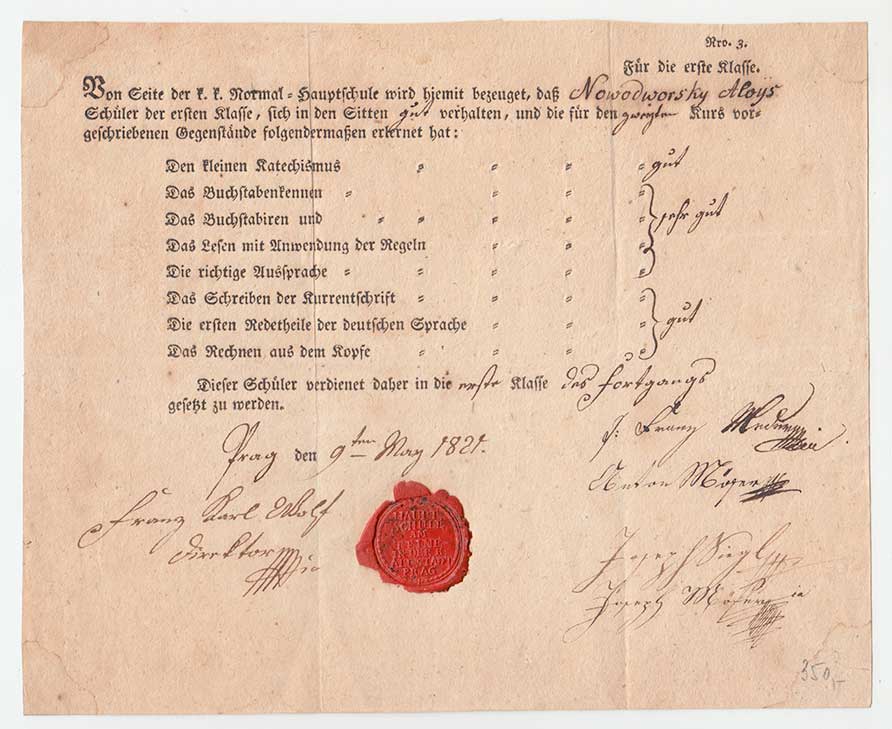 Nro. 3.
Für die erste Klasse.
Von Seite der k. k. Normal-Hauptschule wird hiemit bezeuget, daß Nowodworsky Aloys
Schüler der ersten Klasse, sich in den Sitten gut verhalten, und die für den zweyten Kurs vor-
geschriebenen Gegenstände folgendermaßen erlernet hat:
Den kleinen Katechismus " " " " gut
Das Buchstabenkennen " " " "
Das Buchstabiren und " " " " " sehr gut
Das Lesen mit Anwendung der Regeln " " "
Die richtige Aussprache " " " "
Das Schreiben der Kurrentschrift " " " "
Die ersten Redetheile der deutschen Sprache " " " gut
Das Rechnen aus dem Kopfe " " " "
Dieser Schüler verdienet daher in die erste Klasse des Fortgangs
gesetzt zu werden.
Prag den 9ten May 1821.
Franz
Anton
Franz Karl Wolf
Direktor
HAUPT
SCHULE
AM
PRAG
Joseph
Joseph
350,-